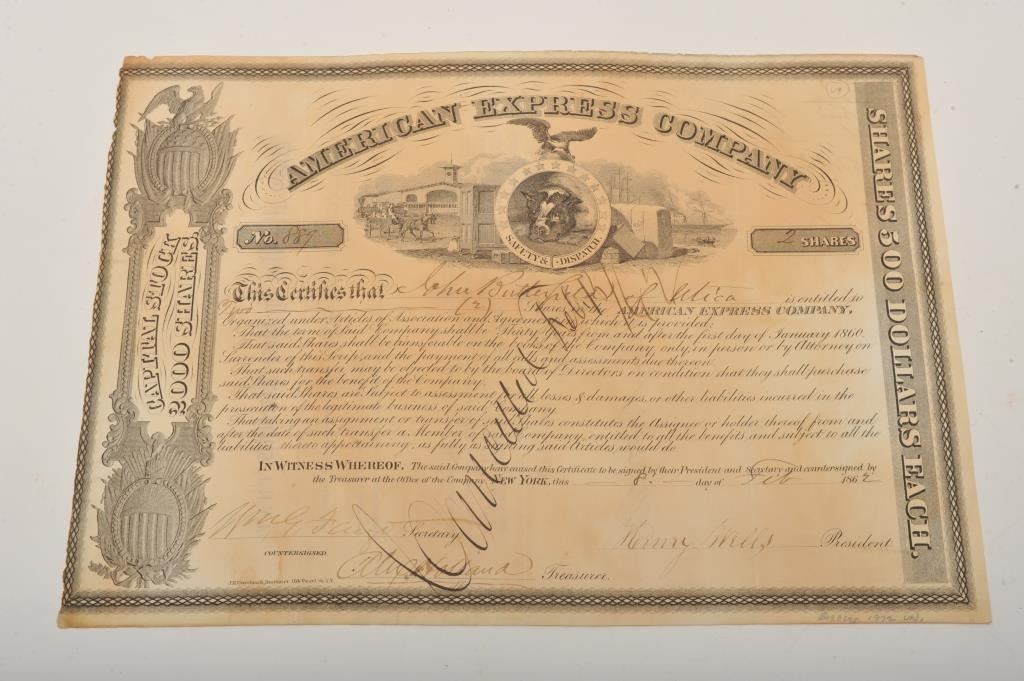 AMERICAN EXPRESS COMPANY
SAFETY & DISPATCH
No. 889
2 SHARES
CAPITAL STOCK
5000 SHARES
SHARES 500 DOLLARS EACH.
This Certifies that John Butterfield of Utica is entitled to
Two (2) Shares in the AMERICAN EXPRESS COMPANY,
Organized under Articles of Association and Agreement which it is provided;
That the term of said Company shall be Thirty years from and after the first day of January 1860.
That said Shares shall be transferable on the books of the Company only, in person or by Attorney on
Surrender of this Scrip, and the payment of all calls and assessments due thereon.
That such transfer may be objected to by the board of Directors on condition that they shall purchase
said Shares for the benefit of the Company.
That said Shares are Subject to assessment for all losses & damages, or other liabilities incurred in the
prosecution of the legitimate business of said Company
That taking an assignment or transfer of said Shares constitutes the Assignee or holder thereof from and
after the date of such transfer a Member of said Company, entitled to all the benefits and subject to all the
liabilities thereto appertaining, as fully as signing said Articles would do.
IN WITNESS WHEREOF, The said Company have caused this Certificate to be signed by their President and Secretary and countersigned by
the Treasurer at the Office of the Company, NEW YORK, this 8 day of Feb 1862
Wm G Fargo Secretary
Henry Wells President
COUNTERSIGNED.
Alex Holland Treasurer.
Cancelled
1972